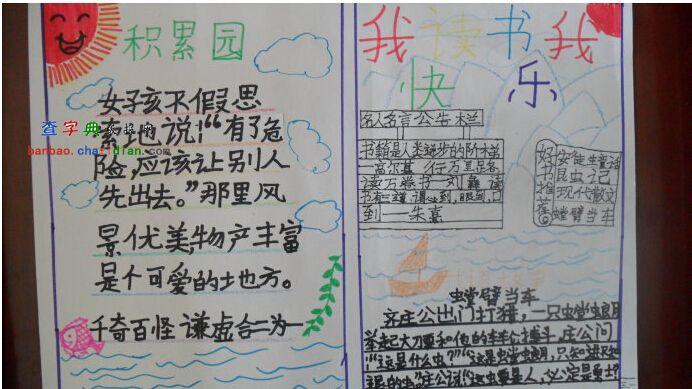 积累园
女子孩不假思
索地说！“有了危
险，应该让别人
先出去。”那里风
景优美，物产丰富
是个可爱的土地方。
千奇百怪 谦虚合二为一
查字典
banbao.chazidian.com
我读书我
快乐
名人名言公告栏
书籍是人类进步的阶梯
——高尔基 行万里路
读万卷书——刘彝 读
书有三道谓心到，眼到，口
到——朱熹
好书推荐
安徒生童话
昆虫记
现代散文
螳臂当车
螳臂当车
齐庄公出门打猎，一只虫螳螂
举起大刀要和他的车轮搏斗。庄公问
“这是什么虫？”“这是螳螂，只知进不知
退的虫”庄公说“